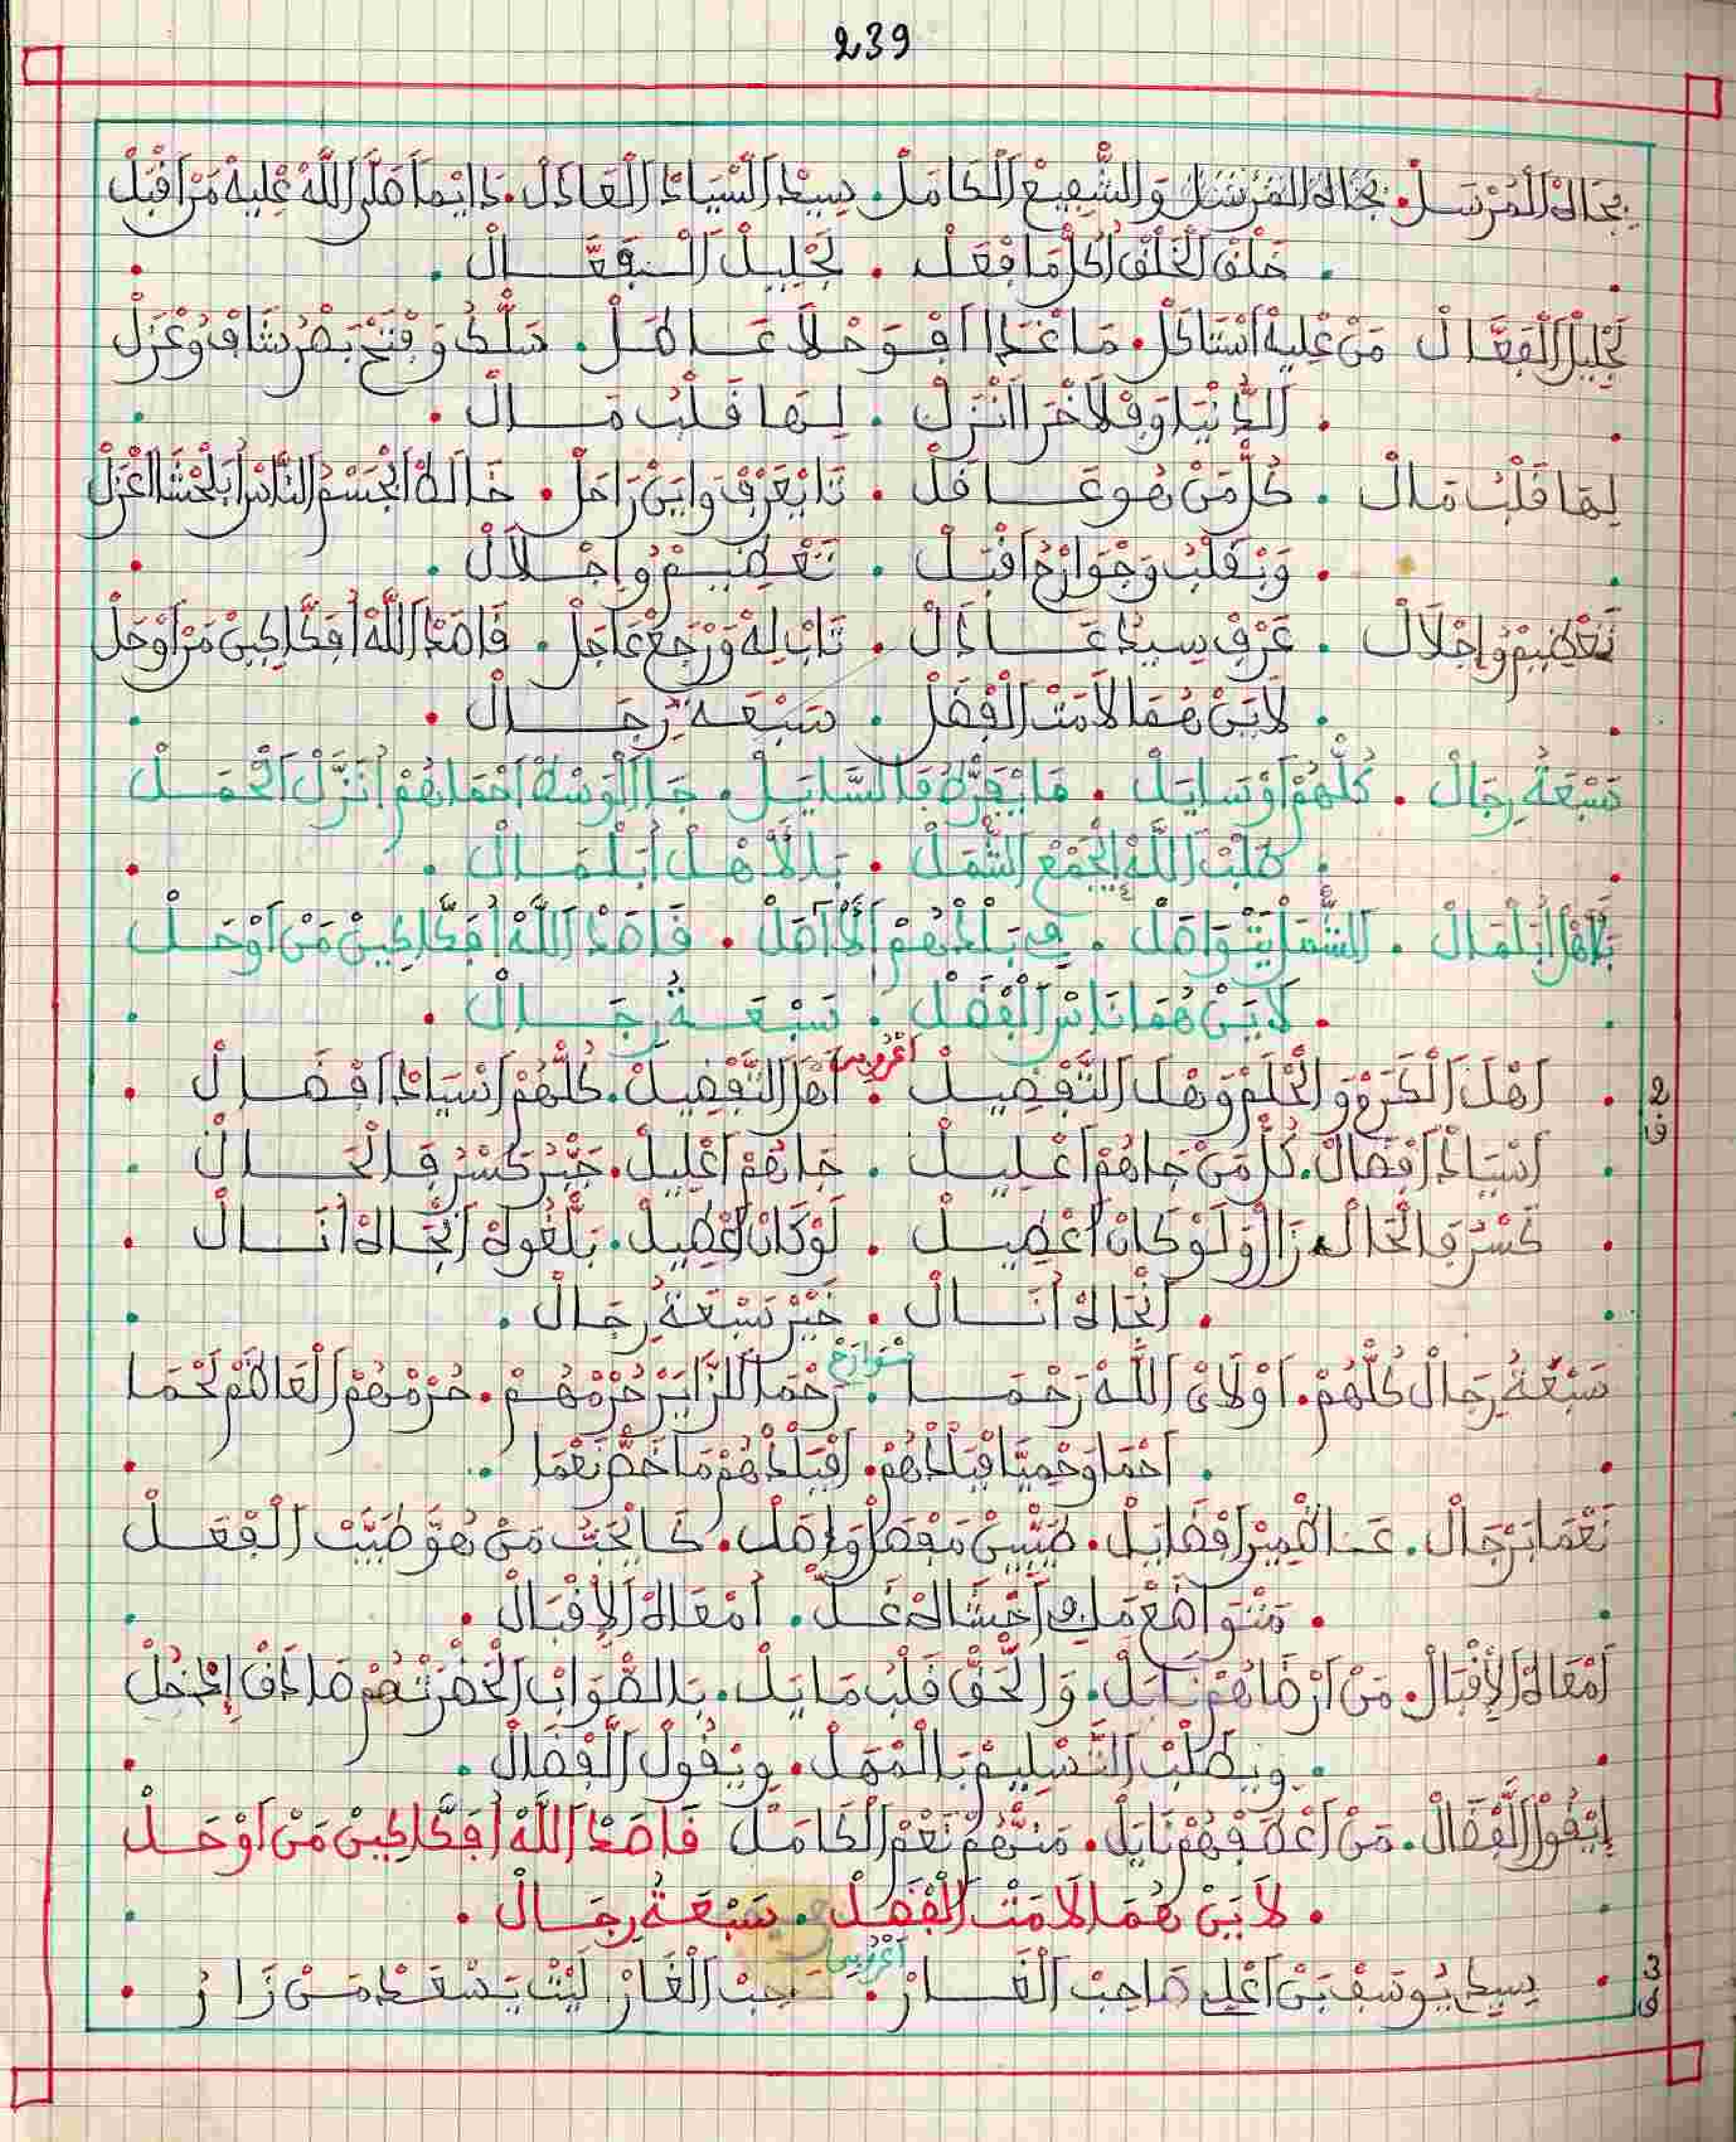 239
بجاه المرسل . بجاه المرسل والشفيع الكامل . سيد السياد العادل . دايما صلى الله عليه من اقبل
. خلق الخلق اكل ما فعل . لجليل الفعال .
لجليل الفعال من عليه استاكل . ما غدا افوحلا عاطل . سلك وفتح بصر شاف وعزل
. الدنيا وفلاخرا انزل . ليها قلب مال .
ليها قلب مال . كل من هو غافل . تايعرف واين راحل . خالط الجسم الناس ابلحشا اعزل
. وبقلب وجوارح اقبل . تعظيم واجلال .
تعظيم واجلال . عرف سيد عادل . تاب ليه ورجع عاجل . قاصد الله افكاكين من اوحل
. لاين هما لامت الفضل . سبعة رجال .
سبعة رجال . كلهم اوسايل . ما يفرط فالسايل . جا الوسط احماهم انزل الحمل
. طلب الله الجمع الشمل . بلاهل ابلمال .
بلاهل ابلمال . الشمل يتواصل . في بلدهم الا اصل . قاصد الله افكاكين من اوحل
. لاين هما ناس الفضل . سبعة رجال .
2 ق
. اهل الكرم والحلم وهل التفضيل . اعروبي اهل التفضيل . كلهم اسياد افضال .
. اسياد افضال . كل من جاهم اعليل . جاهم اعليل . جبر كسر فالحال .
. كسر فالحال زال ولو كان اعضيل . لو كان اعضيل . بلغوه الجاه انال .
. الجاه انال . خير سبعة رجال .
سبعة رجال كلهم . اولاي الله رحما . سوارح رحما للزاير حرمهم . حرمهم العاظم لحما
. احما وحميا فبلادهم . افبلادهم ما خص نعما .
نعما برجال . عاظمين افضايل . طيبين مفصل واصل . كايحب من هو طيب الفعل
. متواضع ملي احشاه غل . امعاه الإقبال .
امعاه الإقبال . من ارضاهم نايل . والحق قلب مايل . بالصواب الحضرتهم صادق إدخل
. ويطلب التسليم بالمهل . ويقول الفضال .
إيقول الفضال . من اعطفهم نايل . منهم نعم الكامل قاصد الله افكاكين من اوحل
. لاين هما لامت الفضل . سبعة رجال .
3 ق
. سيدي يوسف بن اعلي صاحب الغار . اعروبي صاحب الغار ليث يسعد من زار .